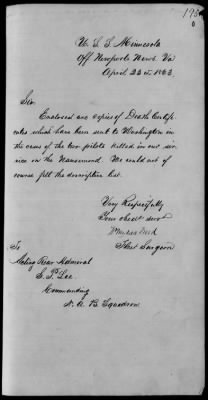 195
6
U. S. S. Minnesota
Off Newports News Va
April 22d, 1863.
Sir
Enclosed are copies of Death Certifi-
cates which have been sent to Washington in
the case of the two pilots killed in our ser-
vice on the Nansemond. We could not of
course fill the descriptive list.
Very Respectfully
Your obedt servt
Wood
Fleet Surgeon
To
Acting Rear Admiral
S. P. Lee
Commanding
N. A. B. Squadron